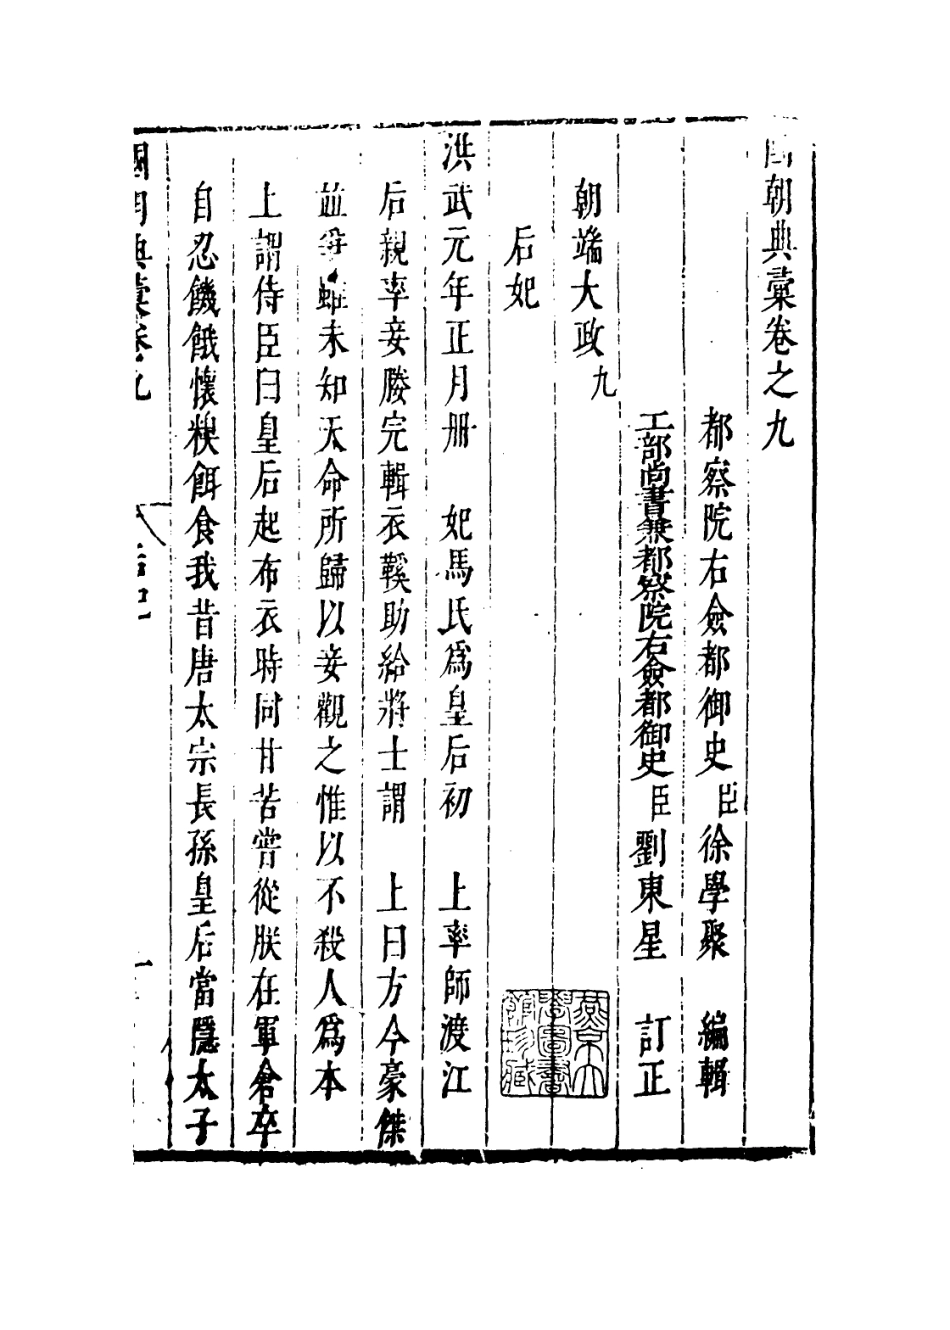 國朝典彙卷之九
都察院右僉都御史臣徐學聚 編輯
工部尚書兼都察院右僉都御史臣劉東星 訂正
朝端大政九
后妃
洪武元年正月冊 妃馬氏爲皇后初 上率師渡江
后親率妾媵完輯衣鞵助給將士謂 上曰方今豪傑
並爭雖未知天命所歸以妾觀之惟以不殺人爲本
上謂侍臣曰皇后起布衣時同甘苦嘗從朕在軍倉卒
自忍饑餓懷糗餌食我昔唐太宗長孫皇后當隱太子
國朝典彙卷九 后妃 一
燕京大學圖書館珍藏